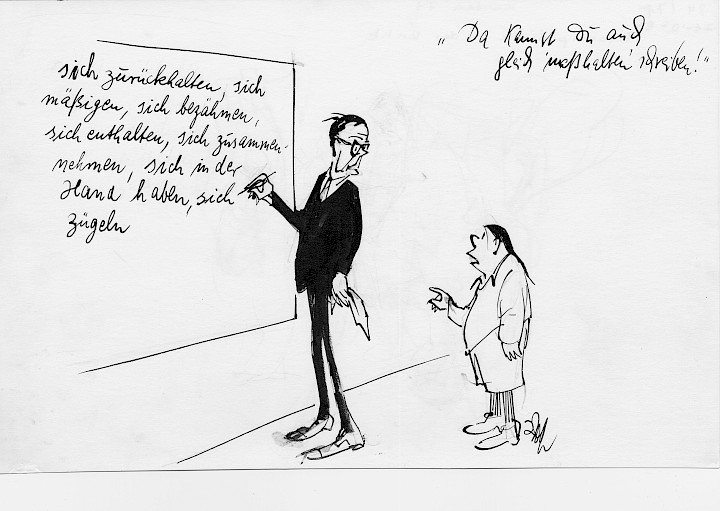 „Da kannst Du auch
gleich 'maßhalten' schreiben!"
sich zurückhalten, sich
mäßigen, sich bezähmen,
sich enthalten, sich zusammen-
nehmen, sich in der
Hand haben, sich
zügeln